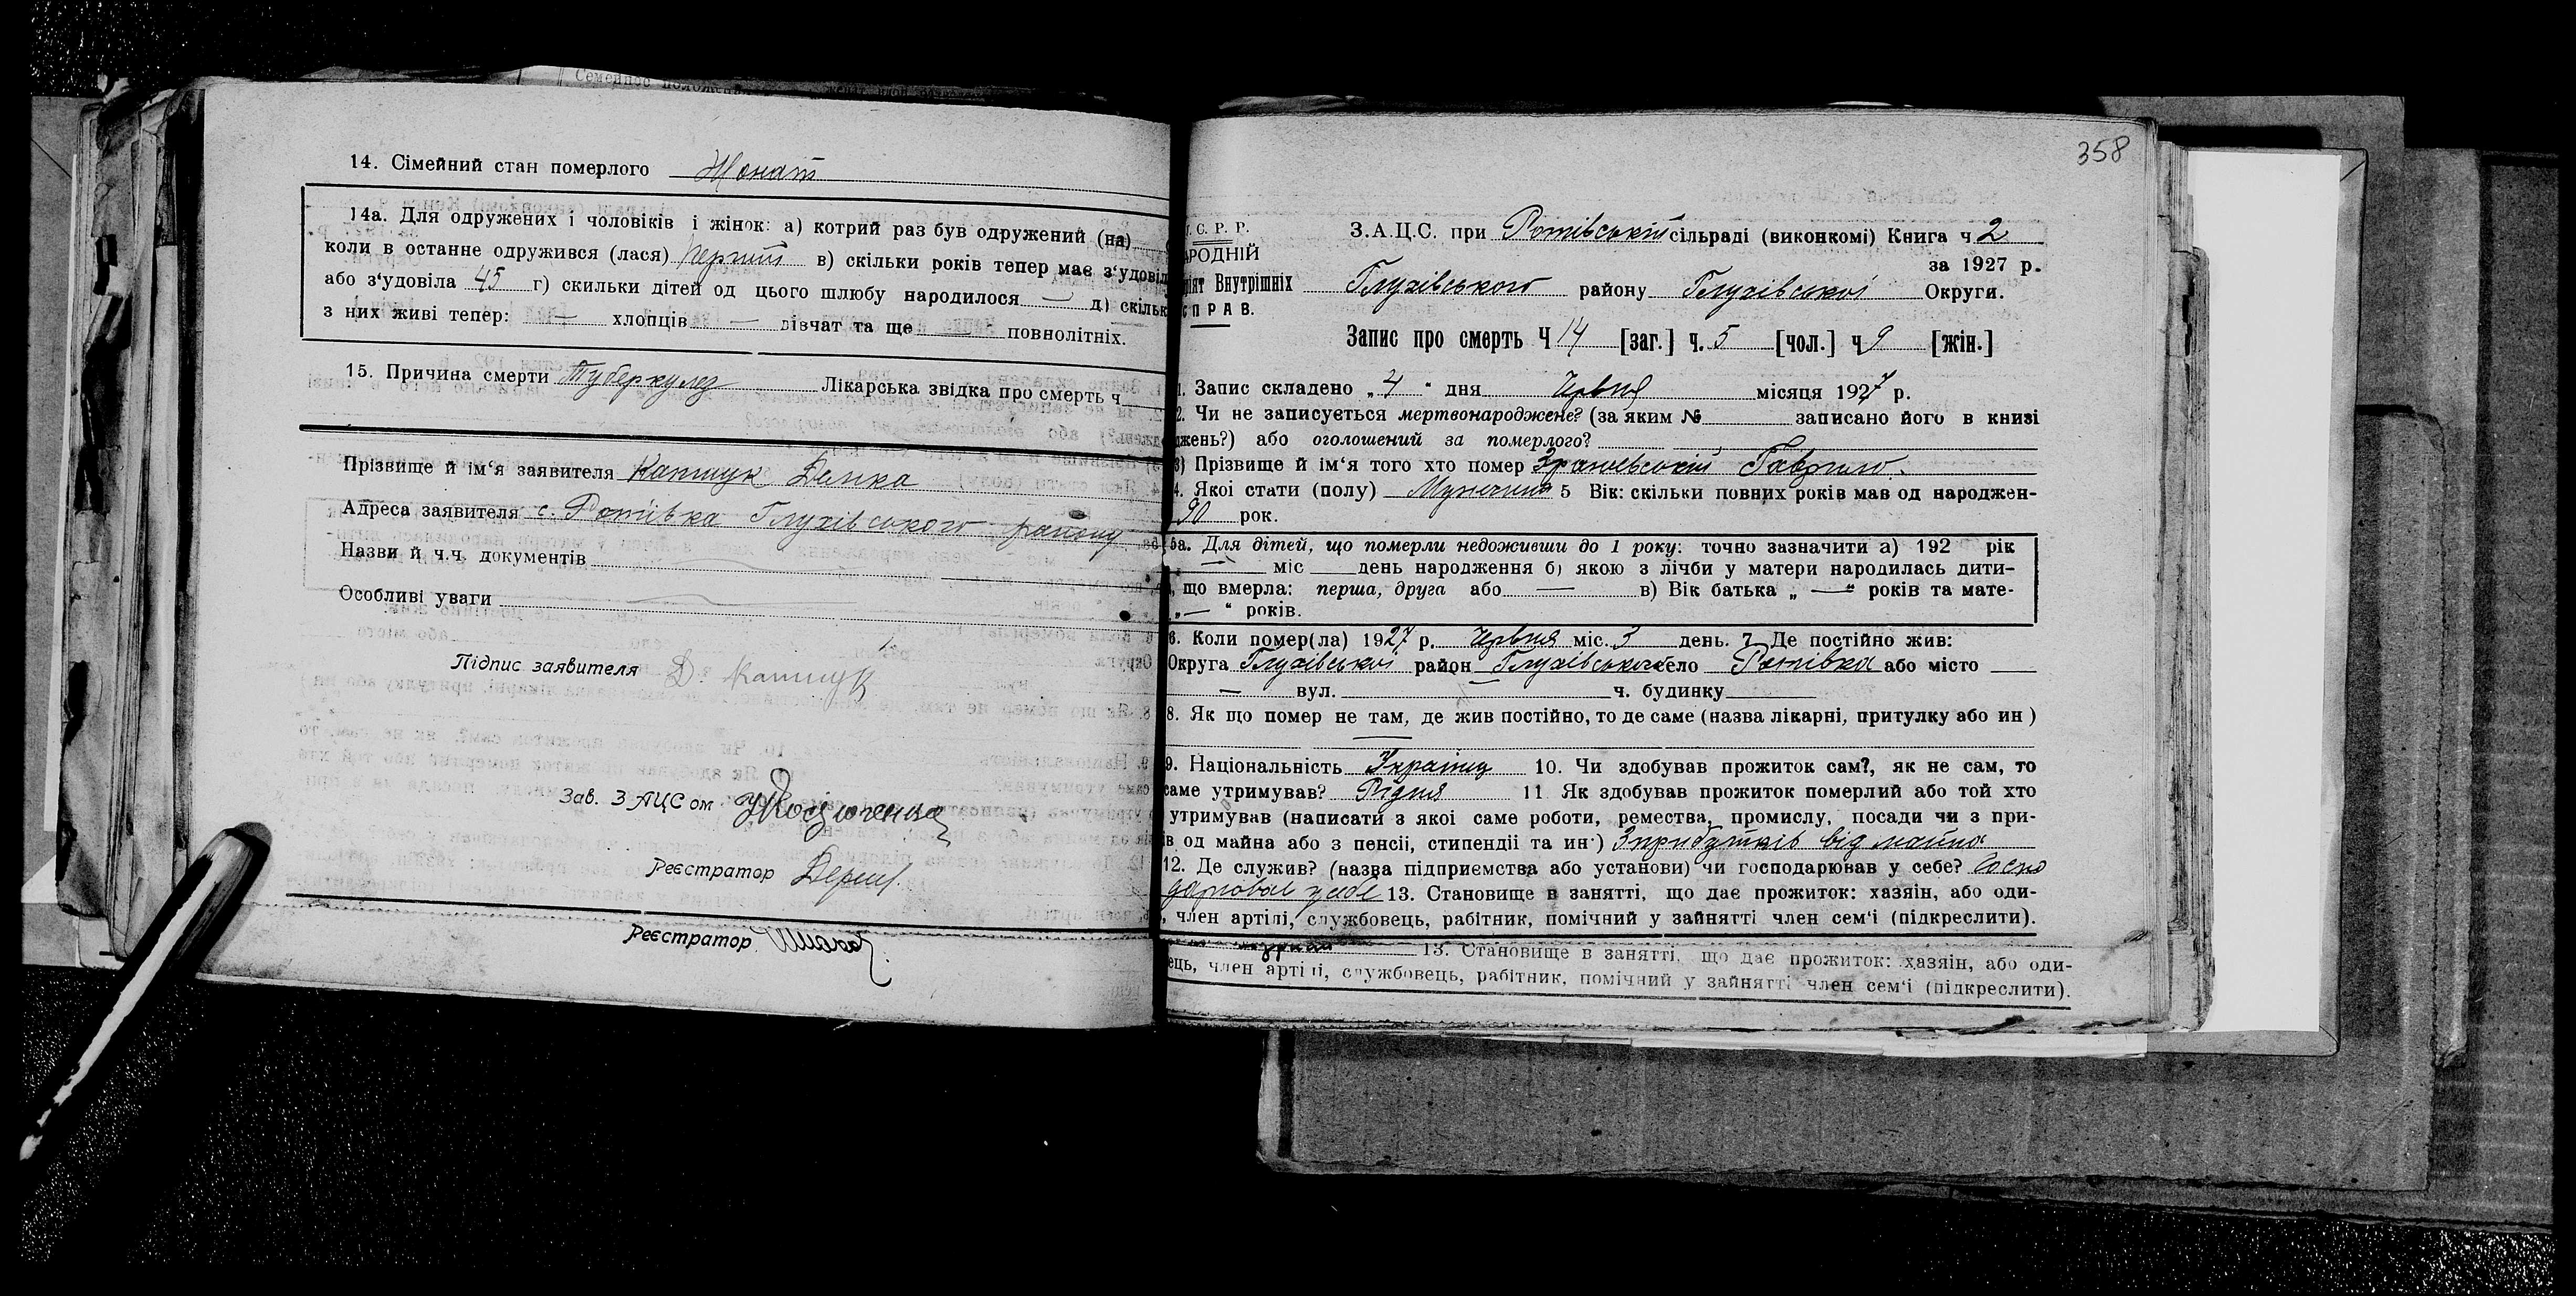 14. Сімейний стан померлого Жонат
14а. Для одружених і чоловіків і жінок: а) котрий раз був одружений (на)
коли в останне одружився (лася) перший в) скільки років тепер має з‘удовіл
або з‘удовіла 45 г) скильки дітей од цього шлюбу народилося — д) скільк
з них живі тепер: — хлопців — дівчат та ще повнолітніх.
15. Причина смерти Туберкулез Лікарська звідка про смерть ч
Прізвище й ім‘я заявителя Капшук Демка
Адреса заявителя с. Ротівка Глухівського району
Назви й ч.ч. документів
Особливі уваги
Підпис заявителя Д. Капшук
Зав. ЗАЦСом
Реєстратор
Реєстратор
358
С. Р. Р.
АРОДНІЙ
ріят Внутрішніх
СПРАВ.
З.А.Ц.С. при Ротівській сільраді (виконкомі) Книга ч 2
за 1927 р.
Глухівського району Глухівської Округи.
Запис про смерть Ч 14 [заг.] ч. 5 [чол.] ч 9 [жін.]
1. Запис складено „ 4 “ дня Червня місяця 1927 р.
2. Чи не записується мертвонароджене? (за яким № записано його в книзі
джень?) або оголошений за померлого?
3) Прізвище й ім‘я того хто помер Гаврило.
4. Якоі стати (полу) Мужчина 5 Вік: скільки повних років мав од народжен-
90 рок.
5а. Для дітей, що померли недоживши до 1 року: точно зазначити а) 192 рік
— міс день народження б) якою з лічби у матери народилась дити-
, що вмерла: перша, друга або — в) Вік батька „ — “ років та мате-
„ — “ років.
6. Коли помер(ла) 1927 р. Червня міс. 3 день. 7. Де постійно жив:
Округа Глухівської район Глухівського село Ротівка або місто —
— вул. ч. будинку
8. Як що помер не там, де жив постійно, то де саме (назва лікарні, притулку або ин )
—
9. Національність Українц 10. Чи здобував прожиток сам?, як не сам, то
саме утримував? Рідня 11 Як здобував прожиток померлий або той хто
утримував (написати з якоі саме роботи, ремества, промислу, посади чи з при-
ів од майна або з пенсіі, стипендіі та ин·) З прибутків від майна
12. Де служив? (назва підприемства або установи) чи господарював у себе? Госпо
дарював у себе 13. Становище в занятті, що дає прожиток: хазяін, або оди-
, член артілі, службовець, рабітник, помічний у зайнятті член сем‘і (підкреслити).
13. Становище в занятті, що дає прожиток: хазяін, або оди-
ець, член артілі, службовець, рабітник, помічний у зайнятті член сем‘і (підкреслити).